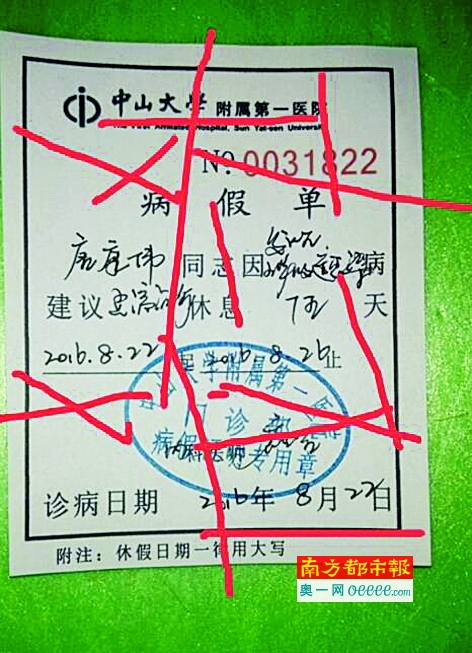 中山大学 附属第一医院
The First Affiliated Hospital, Sun Yat-sen University
№ 0031822
病 假 单
同志因 病
建议 休息 天
2016.8.22 起 2016.8.26 止
中山大学附属第一医院
门诊部
病假证明专用章
诊病日期 2016年8月22日
附注：休假日期一律用大写
南方都市報
奥一网 oeeee.com